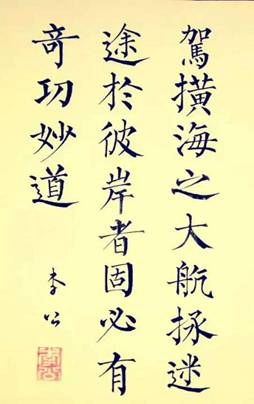 駕横海之大航拯迷
途於彼岸者固必有
奇功妙道
李公